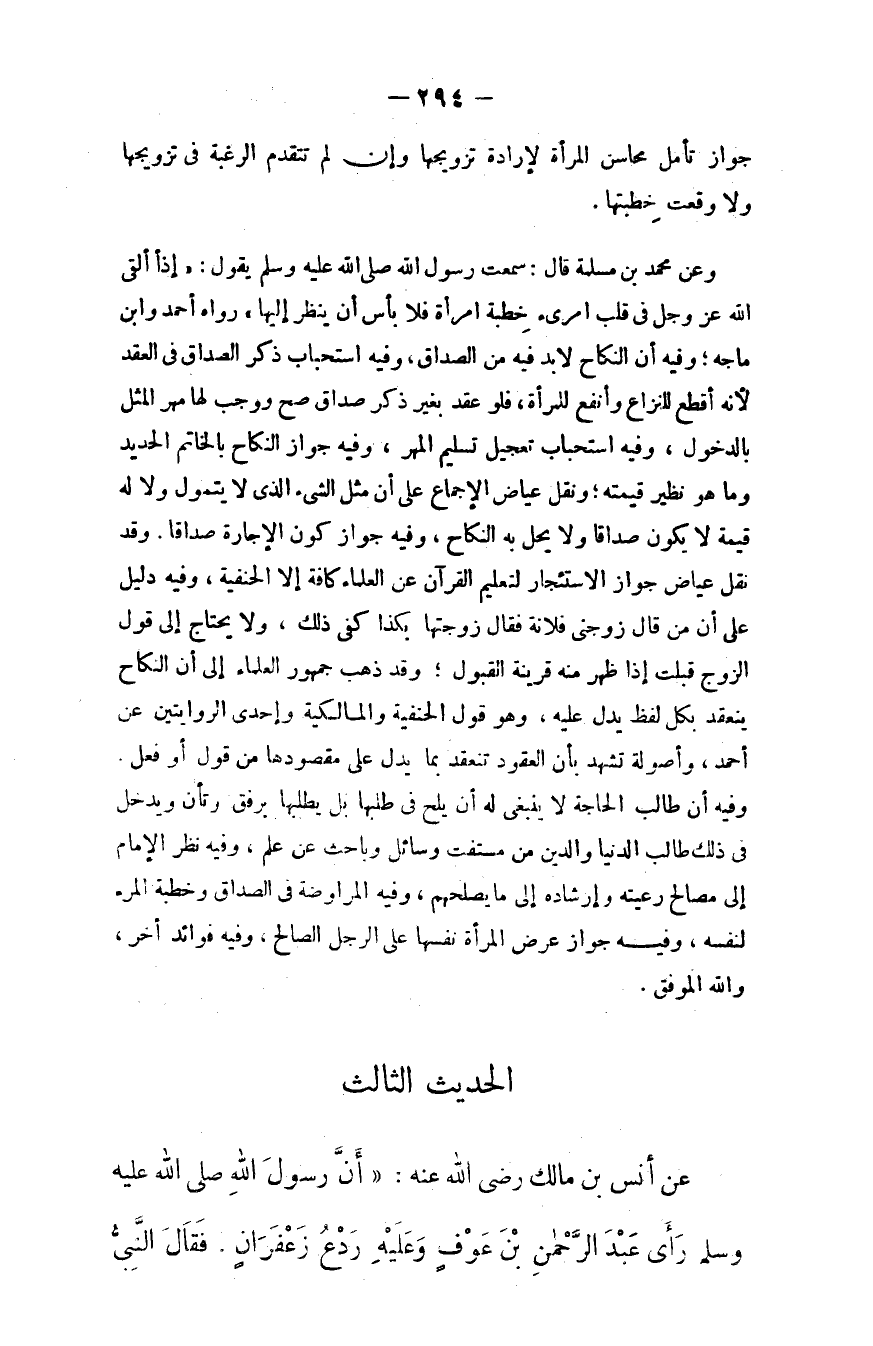 — ٢٩٤ —
جواز تأمل محاسن المرأة لإرادة تزويجها وإن لم تتقدم الرغبة فى تزويجها
ولا وقعت خطبتها .
وعن محمد بن مسلمة قال : سمعت رسول الله صلى الله عليه وسلم يقول : « إذا ألقى
الله عز وجل فى قلب امرىء خطبة امرأة فلا بأس أن ينظر إليها ، رواه أحمد وابن
ماجه ؛ وفيه أن النكاح لابد فيه من الصداق ، وفيه استحباب ذكر الصداق فى العقد
لأنه أقطع للنزاع وأنفع للمرأة ، فلو عقد بغير ذكر صداق صح ووجب لها مهر المثل
بالدخول ، وفيه استحباب تعجيل تسليم المهر ، وفيه جواز النكاح بالخاتم الحديد
وما هو نظير قيمته ؛ ونقل عياض الإجماع على أن مثل الشىء الذى لا يتمول ولا له
قيمة لا يكون صداقا ولا يحل به النكاح ، وفيه جواز كون الإجارة صداقا . وقد
نقل عياض جواز الاستئجار لتعليم القرآن عن العلماء كافة إلا الحنفية ، وفيه دليل
على أن من قال زوجنى فلانة فقال زوجتها بكذا كفى ذلك ، ولا يحتاج إلى قول
الزوج قبلت إذا ظهر منه قرينة القبول ؛ وقد ذهب جمهور العلماء إلى أن النكاح
ينعقد بكل لفظ يدل عليه ، وهو قول الحنفية والمالكية وإحدى الروايتين عن
أحمد ، وأصولة تشهد بأن العقود تنعقد بما يدل على مقصودها من قول أو فعل .
وفيه أن طالب الحاجة لا ينبغى له أن يلح فى طلبها بل يطلبها برفق وتأن ويدخل
فى ذلك طالب الدنيا والدين من مستفت وسائل وباحث عن علم ، وفيه نظر الإمام
إلى مصالح رعيته وإرشاده إلى ما يصلحهم ، وفيه المراوضة فى الصداق وخطبة المرء
لنفسه ، وفيـــه جواز عرض المرأة نفسها على الرجل الصالح ، وفيه فوائد أخر ،
والله الموفق .
الحديث الثالث
عن أنس بن مالك رضى الله عنه : « أَنَّ رسولَ اللهِ صلى الله عليه
وسلم رَأَى عَبْدَ الرَّحْمٰنِ بْنَ عَوْفٍ وَعَلَيْهِ رَدْعُ زَعْفَرَانٍ . فَقَالَ النَّبِيُّ